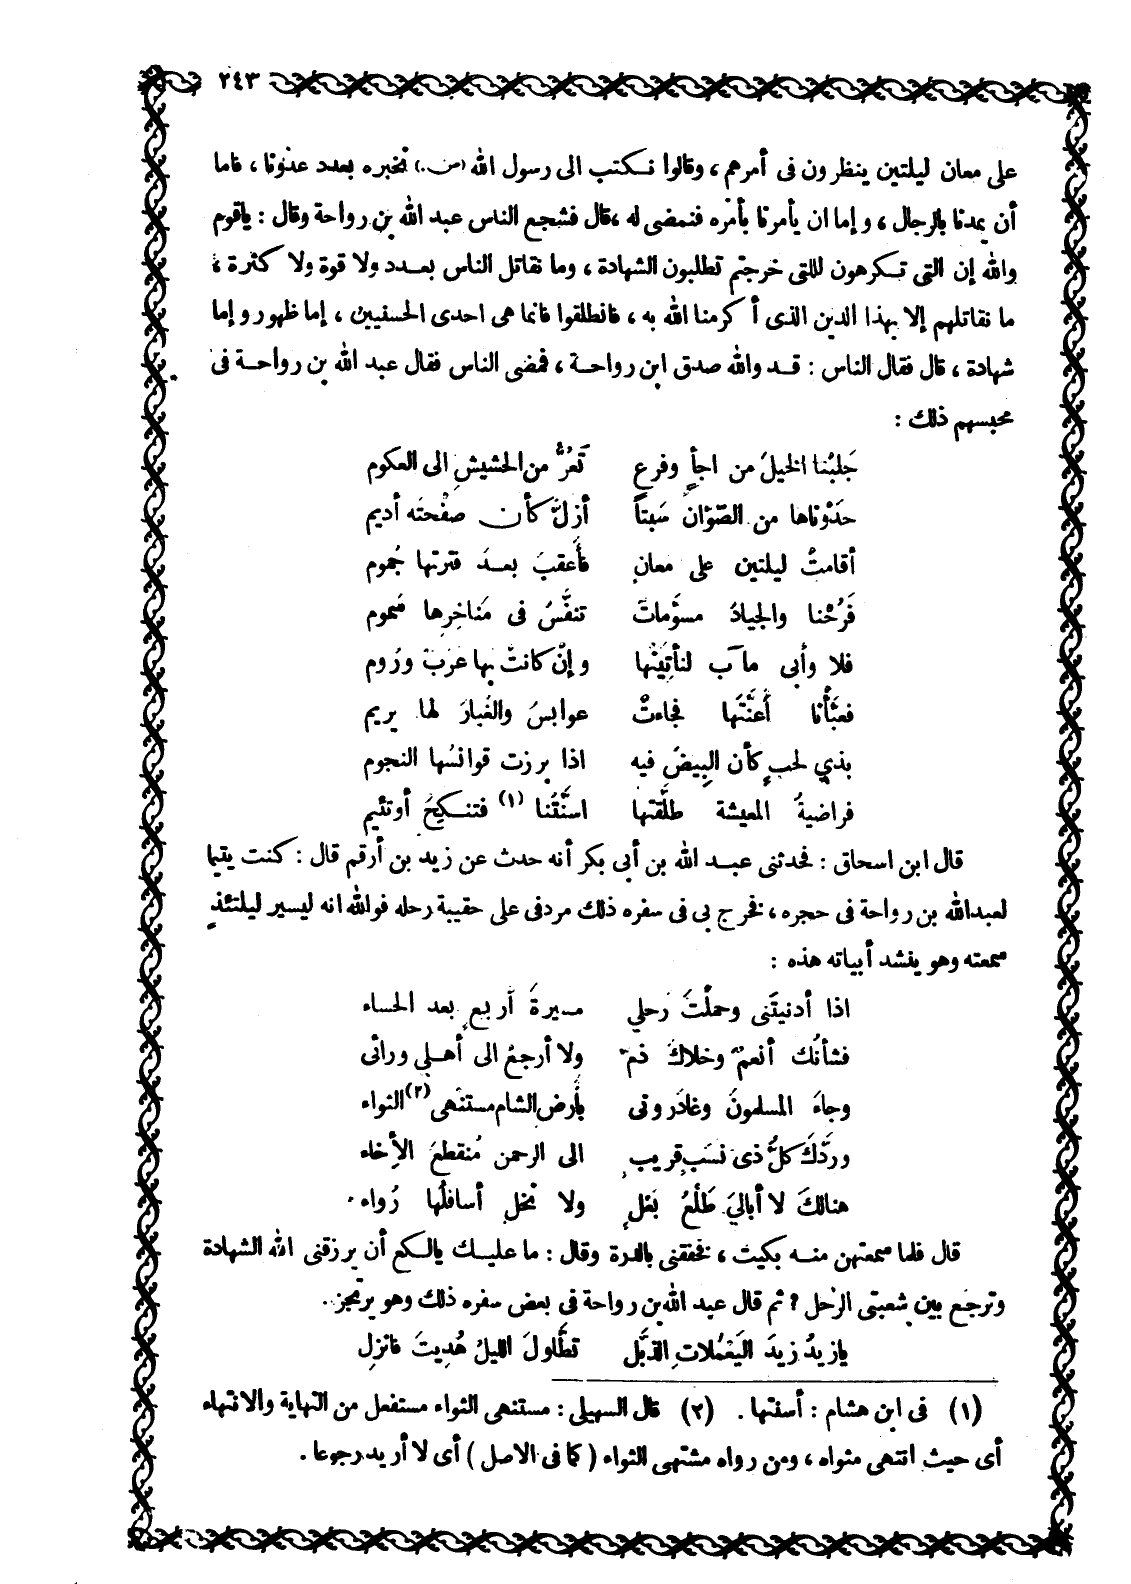 ٢٤٣
على معان ليلتين ينظرون فى أمرهم ، وقالوا نكتب الى رسول الله (ص.) نخبره بعدد عدونا ، فاما
أن يمدنا بالرجال ، وإما ان يأمرنا بأمره فنمضى له ،قال فشجع الناس عبد الله بن رواحة وقال : ياقوم
والله إن التى تكرهون للتى خرجتم تطلبون الشهادة ، وما نقاتل الناس بعدد ولا قوة ولا كثرة ،
ما نقاتلهم إلا بهذا الدين الذى أكرمنا الله به ، فانطلقوا فانما هى احدى الحسنيين ، إما ظهور وإما
شهادة ، قال فقال الناس : قد والله صدق ابن رواحة ، فمضى الناس فقال عبد الله بن رواحة فى
محبسهم ذلك :
جَلبْنا الخيلَ من اجأٍ وفرعٍ تَعُرُّ من الحشيشِ الى العكوم
حذَوْناها من الصّوّان سَبتاً أزلَّ كأن صفْحتَه أديم
أقامتْ ليلتين على معانٍ فأَعقبَ بعدَ فترتها جُموم
فَرُحْنا والجيادُ مسوّماتٌ تنفَّسُ فى مَناخِرِها سَموم
فلا وأبى مآب لنأتِيَنْها وإنْ كانتْ بها عربٌ ورُوم
فعبّأْنا أعنَّتَها فجاءتْ عوابسُ والغُبارَ لها يريم
بذي لجبٍ كأن البِيضَ فيه اذا برزت قوانسُها النجوم
فراضيةُ المعيشة طلَّقتها اسنَّتُنا (١) فتنكِحُ أوتئيم
قال ابن اسحاق : فحدثنى عبد الله بن أبى بكر أنه حدث عن زيد بن أرقم قال : كنت يتيما
لعبدالله بن رواحة فى حجره ، فخرج بي فى سفره ذلك مردفى على حقيبة رحله فوالله انه ليسير ليلتئذٍ
سمعته وهو ينشد أبياته هذه :
اذا أدنيتَنى وحملْتَ رَحلي مسيرةَ أربعٍ بعد الحساء
فشأنُك أنعمٌ وخلاكَ ذمٌ ولا أرجعْ الى أهلي ورائى
وجاءَ المسلمونَ وغادَرونى بأرضِ الشام مستنهى (٢) الثواء
وردَّكَ كلُّ ذى نسَبٍ قريبٍ الى الرحمن مُنقطعَ الأخاء
هنالكَ لا أباليَ طَلْعُ بَعْلٍ ولا نخلٍ أسافلُها رُواء
قال فلما سمعتهن منه بكيت ، فخفقنى بالدرة وقال : ما عليك يالكع أن يرزقنى الله الشهادة
وترجَع بين شعبتى الرَحل ? ثم قال عبد الله بن رواحة فى بعض سفره ذلك وهو يرتجز .
يازيدُ زيدَ اليَعْمُلاتِ الذبَّل تطَّاولَ الليلُ هُديتَ فانزلِ
(١) فى ابن هشام : أسنتها . (٢) قال السهيلى : مستنهى الثواء مستفعل من النهاية والانتهاء
أى حيث انتهى مثواه ، ومن رواه مشتهى الثواء (كما فى الاصل) أى لا أريد رجوعا .